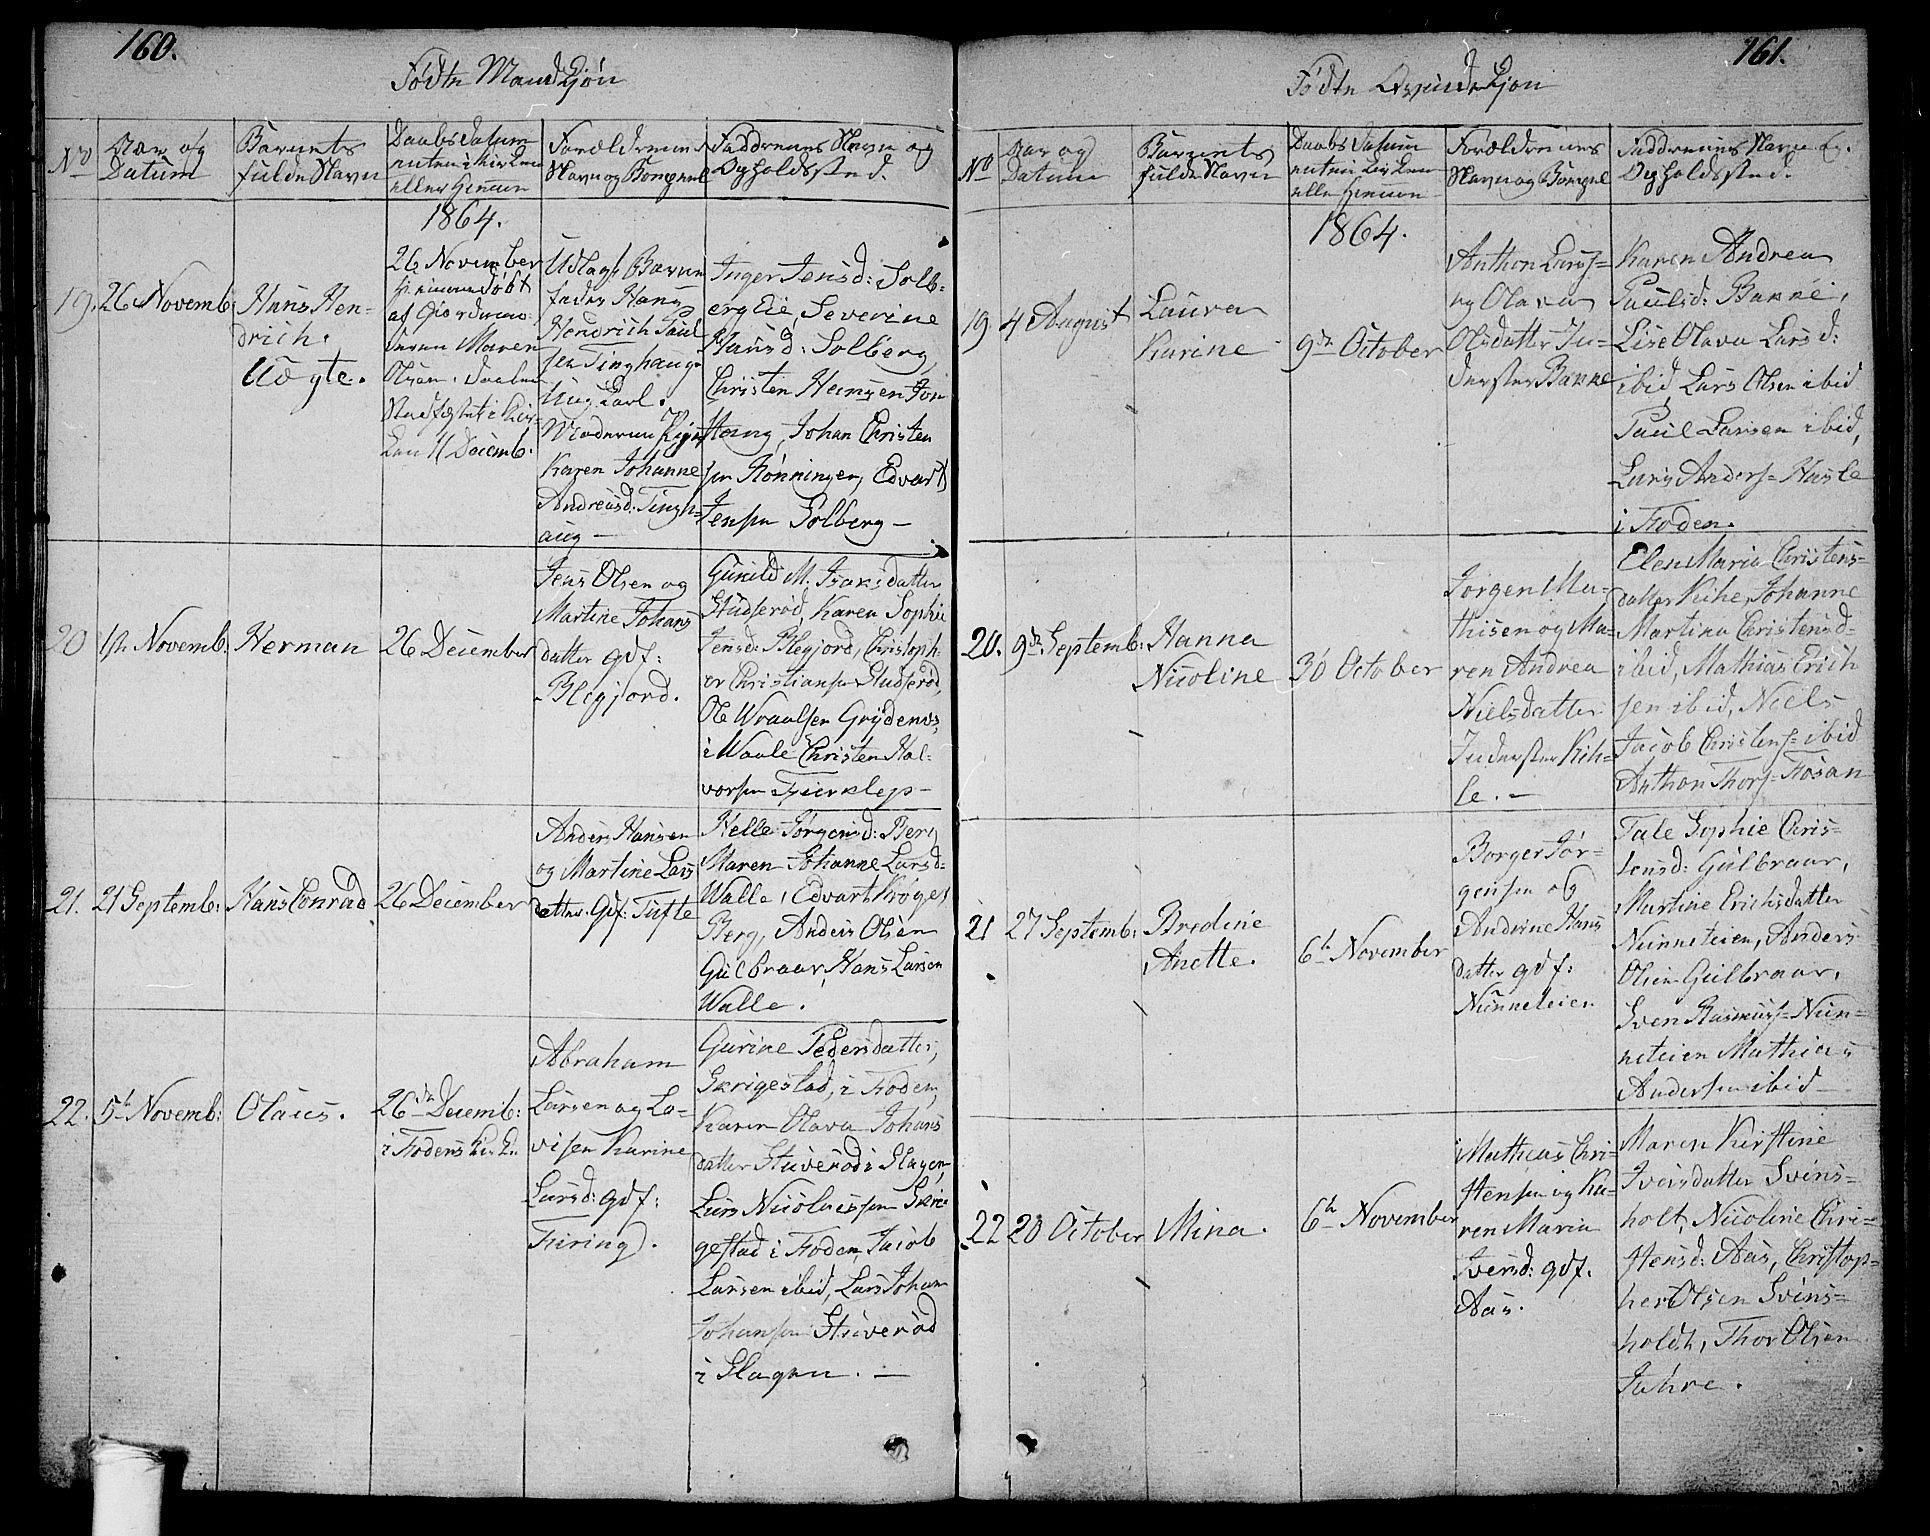 160.
Födte Mandkjön
No
Aar og
Datum
Barnets
fulde Navn
Daabs Datum
enten i Kirken
eller hjemme
Forældrenes
Navn og Bopæl
Faddrenes Navn og
Opholdssted.
1864.
19.
26 Novemb:
Hans Hen-
drich.
Uægte.
26 November
hjemmedöbt
af Giordemo-
deren Maren
Olsen. Daaben
Stadfæstet i Kir-
ken 11 Decemb.
Udlagt Barne
fader Hans
Hendrich Paul
sen Tinghaug
Ung Karl.
Moderen Pige
Karen Johanne
Andreasd: Tingh-
aug -
Inger Jensd: Solb-
erg Eie, Severine
Hansd: Solberg,
Christen
Haug, Johan Christen
sen Rönningen, Edvart
Jensen Solberg -
20
Novemb:
Herman
26 December
Jens Olsen og
Martine Johans
datter gdf:
Blegjord.
Gunild M. Isaksdatter
Studseröd, Karen Sophie
Jensd: Blegjord, Christoph-
er Christiansen Studseröd,
Ole Wraalsen
i Waale Christen Hal-
vorsen
21.
21 Septemb:
Hans Conrad
26 December
Anders Hansen
og Martine Lars
datter. Gdf: Tufte
Helle Jörgensd: Berg
Maren Johanne Larsd-
Walle, Edvart
Berg, Anders Olsen
Gulbraar, Hans Larsen
Walle.
22.
5t Novemb:
Olaus.
26de Decemb:
i Fodens Kirke
Abraham
Larsen og Lo-
visen Karine
Larsd: gdf:
Firing.
Gurine Pedersdatter,
Skrigestad, i Foden,
Karen Olava Johans
datter Stuveröd i Slagen,
Lars Nicolaessen Skri-
gestad i Foden, Jacob
Larsen ibid, Lars Johan
Johansen Stuveröd
i Slagen. -
161.
Födte Qvindekjön
No
Aar og
Datum
Barnets
fulde Navn
Daabs Datum
enten i Kirken
eller hjemme
Forældrenes
Navn og Bopæl
Faddrenes Navn og
Opholdssted.
1864.
19.
4 August
Laura
Karine
9de October
Anthon Lars-
og Olava
Olsdatter In-
derster Bakke
Karen Andrea
Paulsd: Bakke,
Lise Olava Larsd:
ibid, Lars Olsen ibid
Paul Larsen ibid,
Lars Anders- Hasle
i Foden.
20.
9de Septemb:
Hanna
Nicoline
30 October
Jörgen Ma-
thisen og Ma-
ren Andrea
Nielsdatter
Inderster Kih-
le. -
Elen Maria Christens-
datter Kihe, Johanne
Martina Christensd-
ibid, Mathias Erich
sen ibid, Niels
Jacob Christens- ibid
Anthon Thors- Fosan
21
27 Septemb:
Bredine
Anette.
6t November
Borger Jör-
gensen og
Andrine Hans
datter gdf:
Nunneteien
Tale Sophie Chris-
tensd: Gulbraar,
Martine Erichsdatter
Nunneteien, Anders
Olsen Gulbraar,
Sven Rasmuss- Nun-
neteien Mathias
Andersen ibid
22
20 October
Mina.
6te November
Mathias Chri-
stensen og Ka-
ren Maria
Iversd: gdf.
Aas.
Maren Kirstine
Iversdatter Svins-
holt, Nicoline Chri-
stensd: Aas, Christop-
her Olsen Svins-
holdt, Thor Olsen
Jahre.